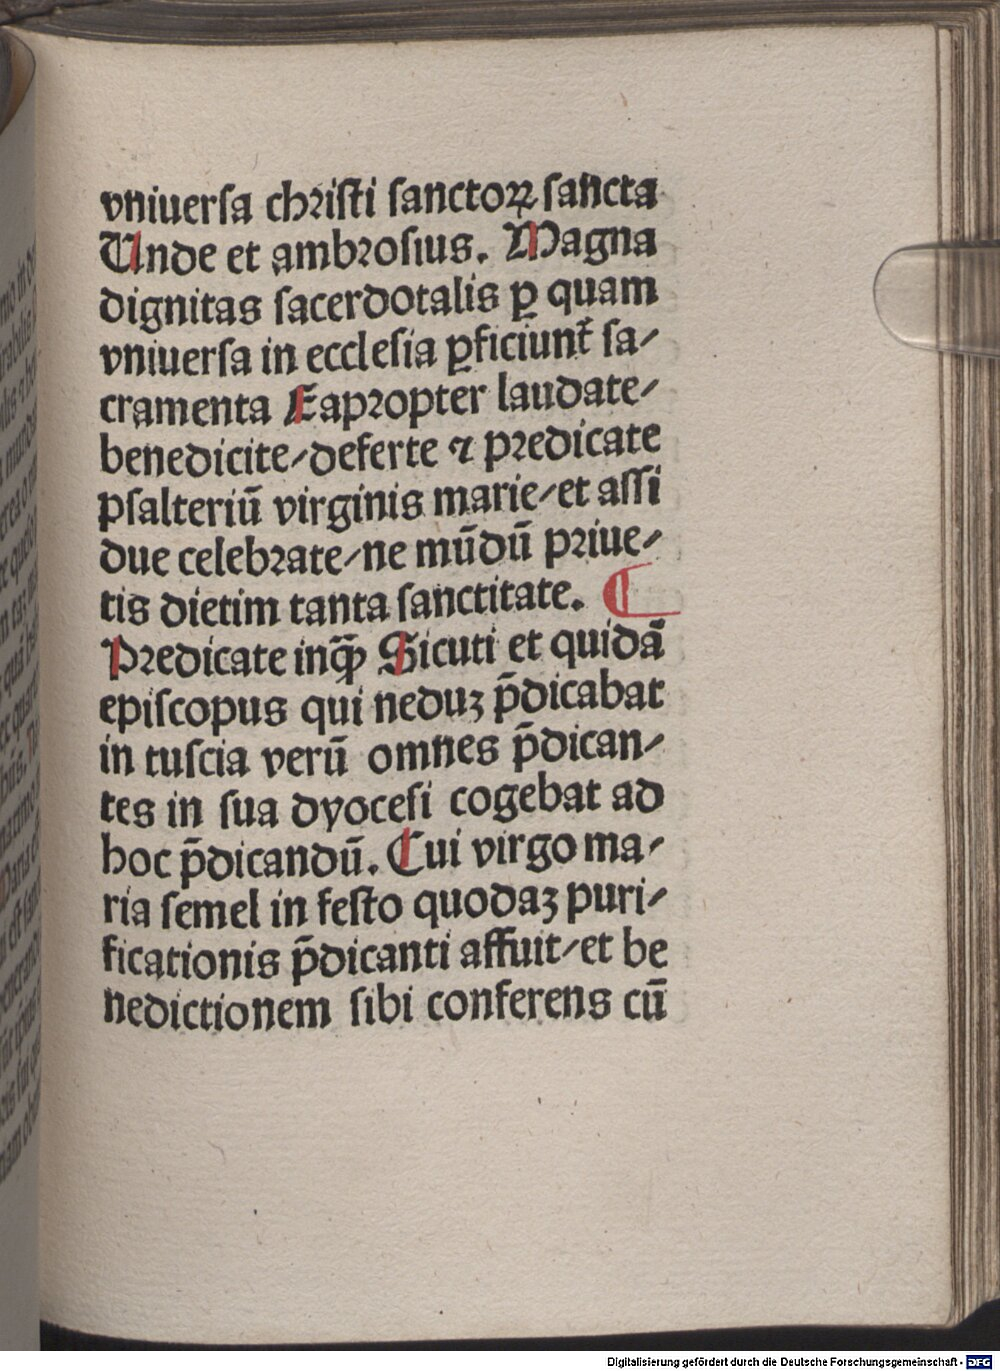 vniuerſa chꝛiſti ſanctoꝝ ſancta
Unde et ambꝛoſius. Magna
dignitas ſacerdotalis ꝑ quam
vniuerſa in eccleſia ꝑficiunt᷑ ſa⸗
cramenta Eapꝛopter laudate/
benedicite/deferte ⁊ pꝛedicate
pſalteriū virginis marie/et aſſi
due celebꝛate/ne mūdū pꝛiue⸗
tis dietim tanta ſanctitate. ¶
Pꝛedicate inꝙ̄ Sicuti et quidā
epiſcopus qui neduꝫ p̄dicabat
in tuſcia verū omnes p̄dican⸗
tes in ſua dyoceſi cogebat ad
hoc p̄dicandū. Cui virgo ma⸗
ria ſemel in feſto quodaꝫ puri⸗
ficationis p̄dicanti affuit/et be
nedictionem ſibi conferens cū
Digitalisierung gefördert durch die Deutsche Forschungsgemeinschaft - DFG